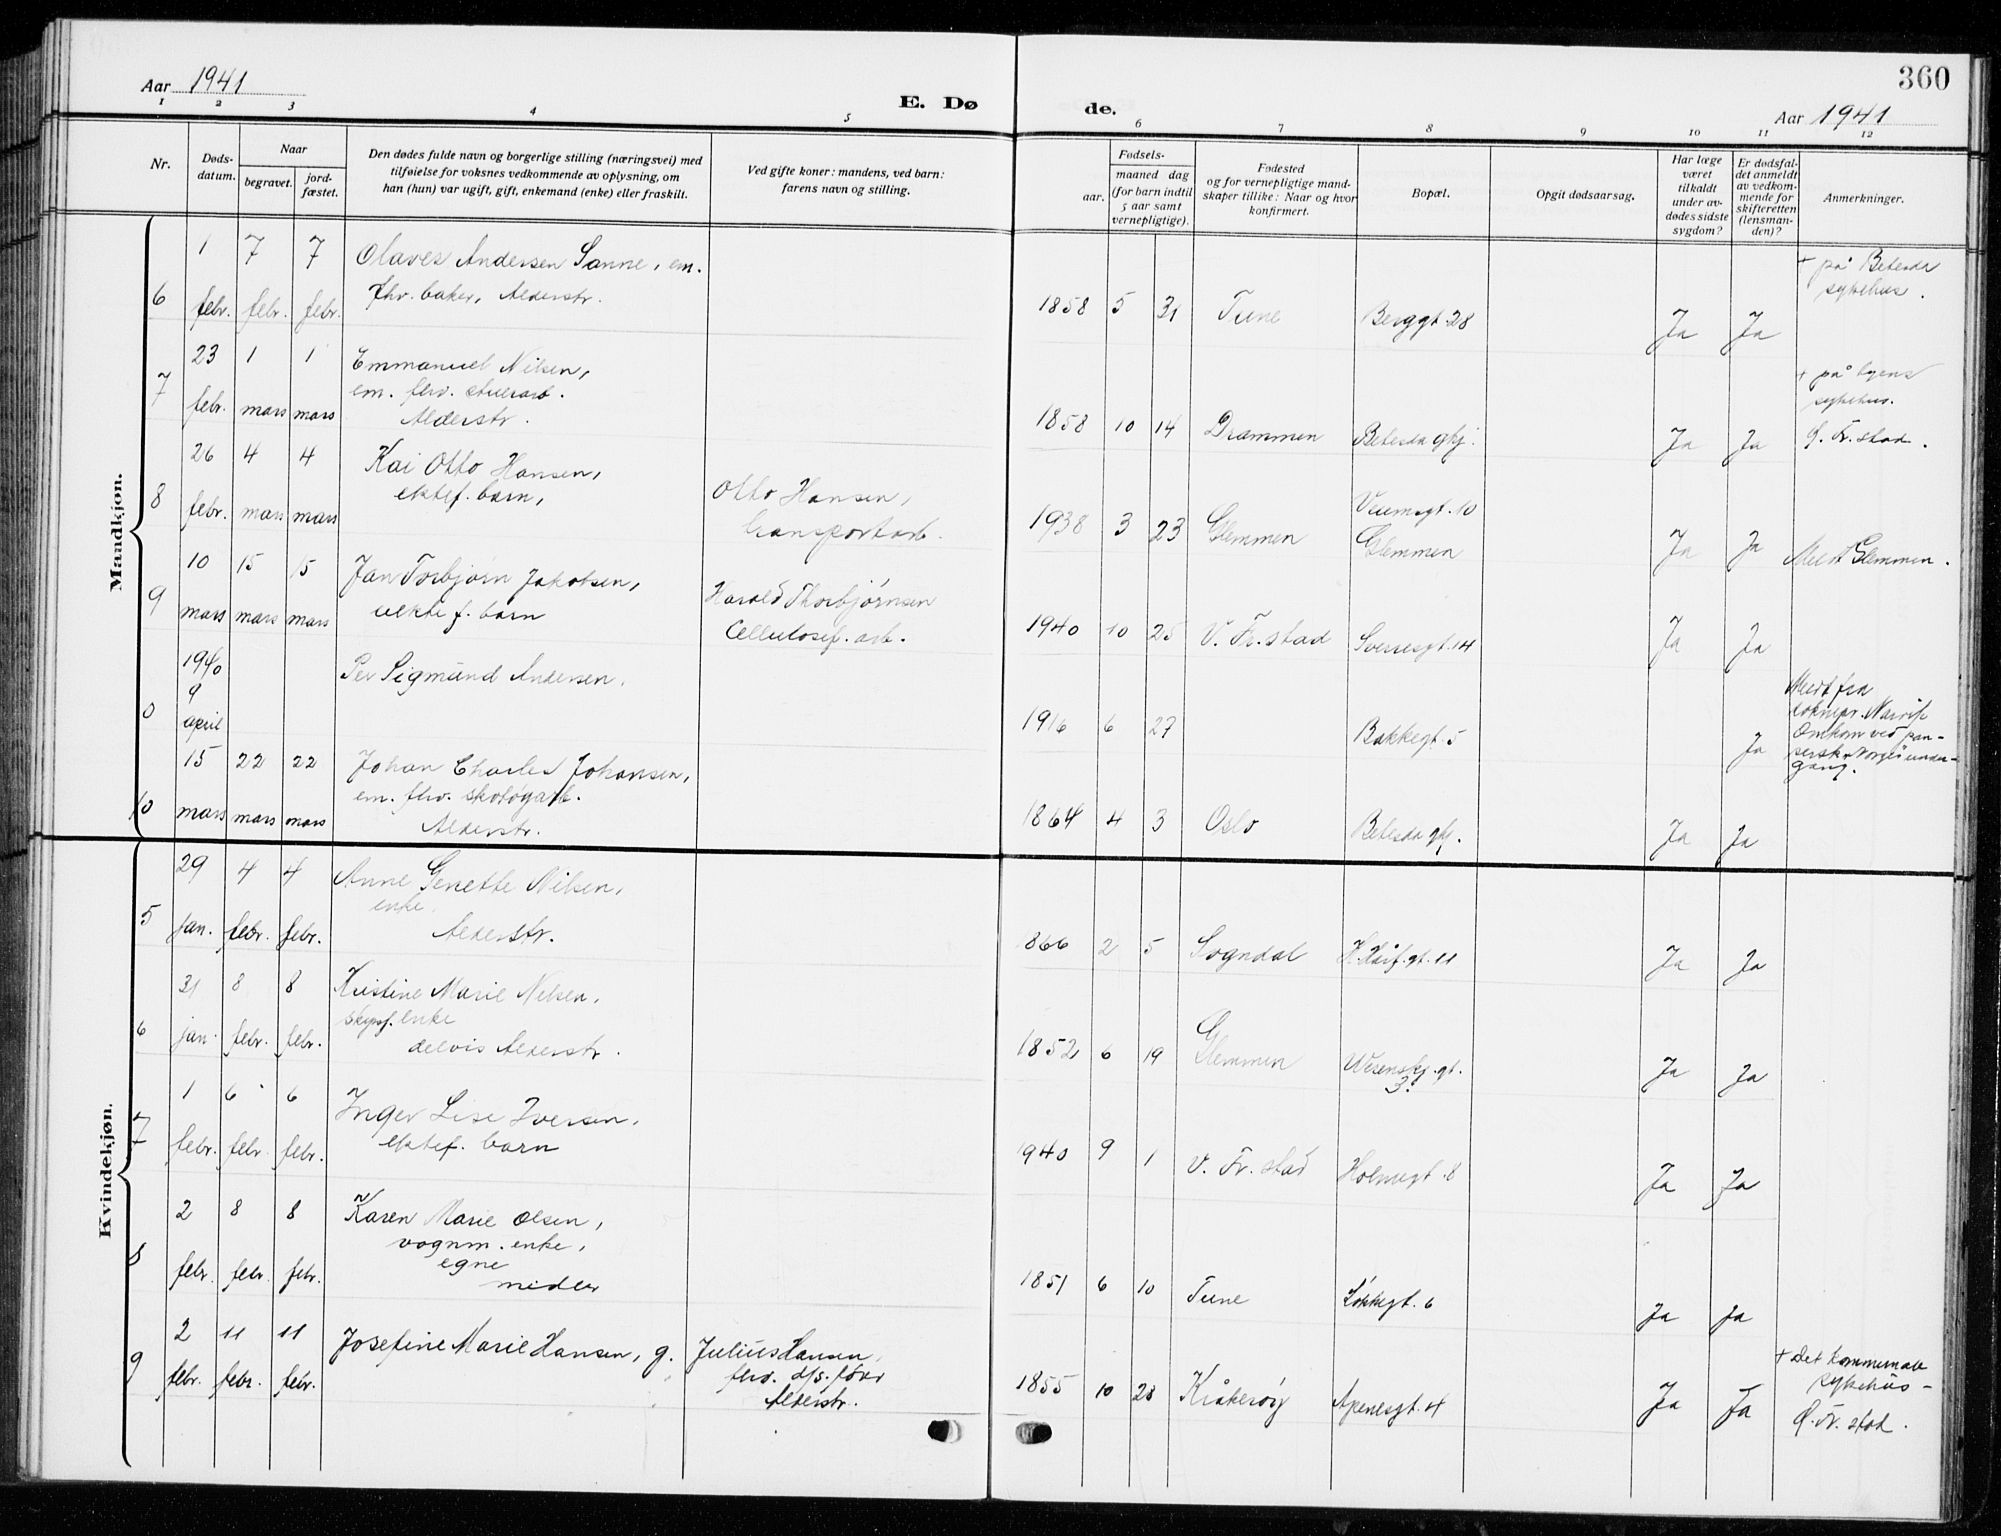 Aar 1941
E. Dø
de.
360
Aar 1941
1 2 3 4 5 6 7 8 9 10 11 12
Nr.
Døds-
datum.
Naar
begravet.
jord-
fæstet.
Den dødes fulde navn og borgerlige stilling (næringsvei) med
tilføielse for voksnes vedkommende av oplysning, om
han (hun) var ugift, gift, enkemand (enke) eller fraskilt.
Ved gifte koner: mandens, ved barn:
farens navn og stilling.
Fødsels-
aar.
maaned dag
(for barn indtil
5 aar samt
vernepligtige).
Fødested
og for vernepligtige mand-
skaper tillike: Naar og hvor
konfirmert.
Bopæl.
Opgit dødsaarsag.
Har læge
været
tilkaldt
under av-
dødes sidste
sygdom?
Er dødsfal-
det anmeldt
av vedkom-
mende for
skifteretten
(lensman-
den)?
Anmerkninger.
Mandkjøn.
1 7 7 Olaves Andersen Sanne, em.
fhv. baker, Alderstr.
6 febr. febr. febr.
1858 5 31 Tune Berggt. 28 Ja Ja
+ på Betesda
sykehus.
23 1 1 Emmanuel Nilsen,
em. fhv. stuerarb.
7 febr. mars mars Alderstr.
1858 10 14 Drammen Betesda ghj. Ja Ja
+ på byens
sykehus.
Ø. Fr.stad.
26 4 4 Kai Otto Hansen,
ektef. barn,
8 febr. mars mars
Otto Hansen,
transportarb.
1938 3 23 Glemmen
Veumsgt. 10
Glemmen
Ja Ja Meldt Glemmen.
10 15 15 Jan Torbjørn Jakobsen,
9 mars mars mars uekte f. barn
Harald Thorbjørnsen
Cellulosef. arb.
1940 10 25 V. Fr.stad Sverresgt. 14 Ja Ja
1940
9
0 april
Per Sigmund Andersen.
1916 6 27 Bakkegt. 5 Ja
Meldt fra
soknepr. Narvik
Omkom ved pan-
serskr. Norges under-
gang.
15 22 22 Johan Charles Johansen,
em. fhv. skotøyarb.
10 mars mars mars Alderstr.
1864 4 3 Oslo Betesda ghj. Ja Ja
Kvindekjøn.
29 4 4 Anne Genette Nilsen,
enke
5 jan. febr. febr. Alderstr.
1866 2 5 Sogndal gt. 11 Ja Ja
31 8 8 Kristine Marie Nilsen,
skipsf. enke
6 jan. febr. febr. delvis Alderstr.
1852 6 19 Glemmen
Wesenskj. gt.
3.
Ja Ja
1 6 6 Inger Lise Iversen,
7 febr. febr. febr. ektef. barn
1940 9 1 V. Fr. stad Holmegt. 8 Ja Ja
2 8 8 Karen Marie Olsen,
vognm. enke,
egne
8 febr. febr. febr. midler
1851 6 10 Tune Løkkegt. 6 Ja Ja
2 11 11 Josefine Marie Hansen, g.
9 febr. febr. febr.
Julius Hansen,
fhv. d/s. fører
Alderstr.
1855 10 28 Kråkerøy Apenesgt. 4 Ja Ja
+ Det kommunale
sykehus -
Ø. Fr. stad.